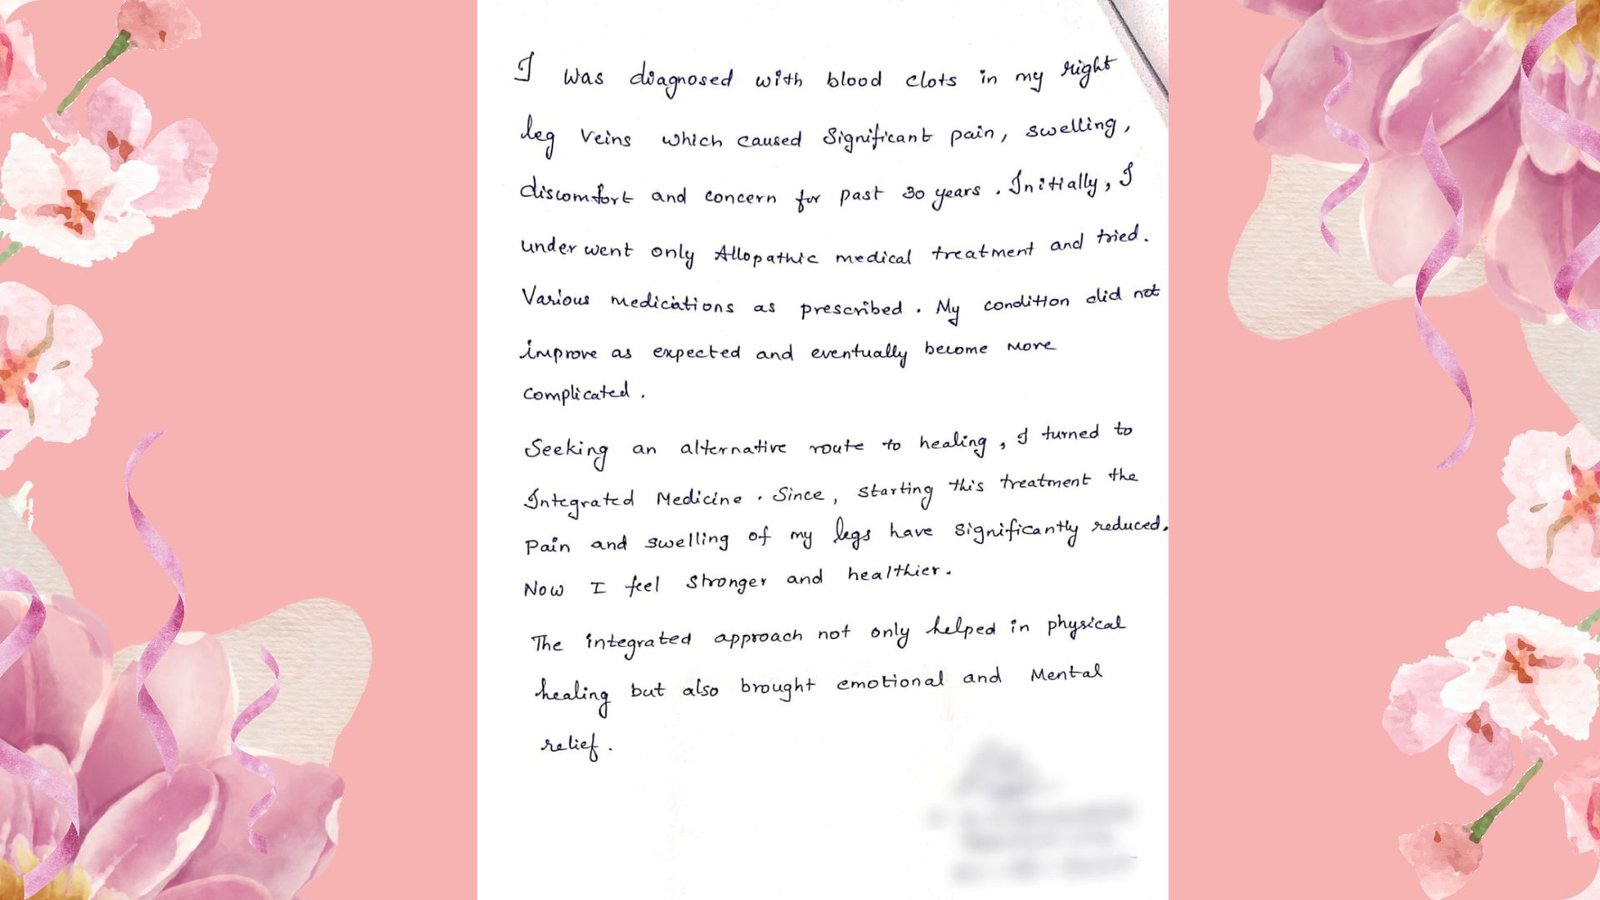 I was diagnosed with blood clots in my right
leg veins which caused significant pain, swelling,
discomfort and concern for past 30 years. Initially, I
under went only Allopathic medical treatment and tried.
Various medications as prescribed. My condition did not
improve as expected and eventually become more
complicated.
Seeking an alternative route to healing, I turned to
Integrated Medicine. Since, starting this treatment the
Pain and swelling of my legs have significantly reduced.
Now I feel stronger and healthier.
The integrated approach not only helped in physical
healing but also brought emotional and Mental
relief.